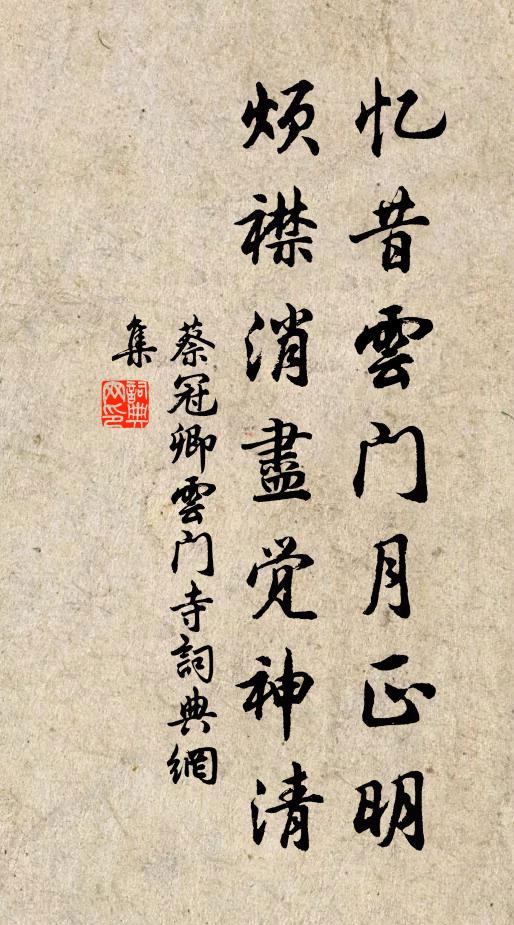 忆昔雲门月正明
烦襟消盡觉神清
蔡冠卿雲门寺詞典網
集
詞典
网印